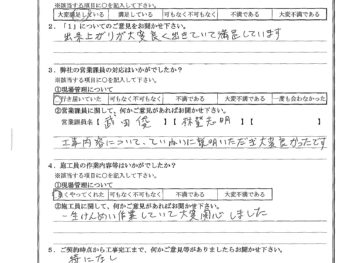 ※該当する項目に○を記入して下さい。
大変満足している 満足している 可もなく不可もなく 不満である 大変不満である
2．「1」についてのご意見をお聞かせ下さい。
出来上がりが大変良く出きていて満足しています
3．弊社の営業課員の対応はいかがでしたか？
※該当する項目に○を記入して下さい。
①現場管理について
行き届いていた 可もなく不可もなく 不満である 大変不満である 一度も合わなかった
②営業課員に関して、何かご意見があればお聞かせ下さい。
営業課員名【 武田俊 】【 林 明 】
工事内容について、ていねいに説明いただき大変良かったです
4．施工員の作業内容等はいかがでしたか？
※該当する項目に○を記入して下さい。
①現場管理について
良くやってくれた 可もなく不可もなく 不満である 大変不満である
②施工員に関して、何かご意見があればお聞かせ下さい。
一生けんめい作業していて大変関心しました
5．ご契約時点から工事完工まで、何かご意見等がありましたらお聞かせ下さい。
特になし